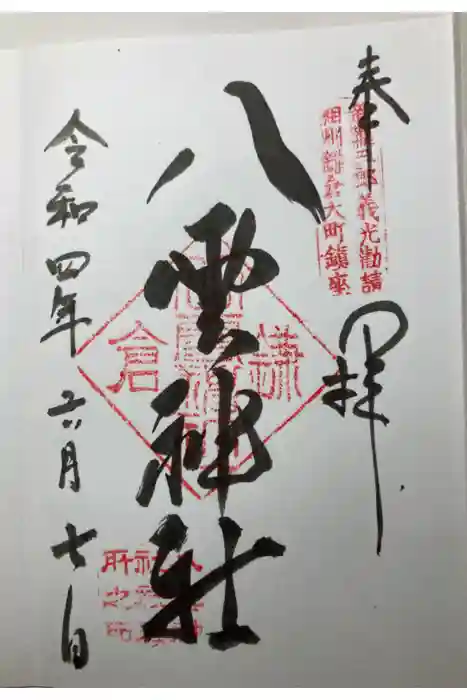 奉拝
新羅三郎義光勧請
相州鎌倉大町鎮座
八雲神社
鎌倉
令和四年六月七日